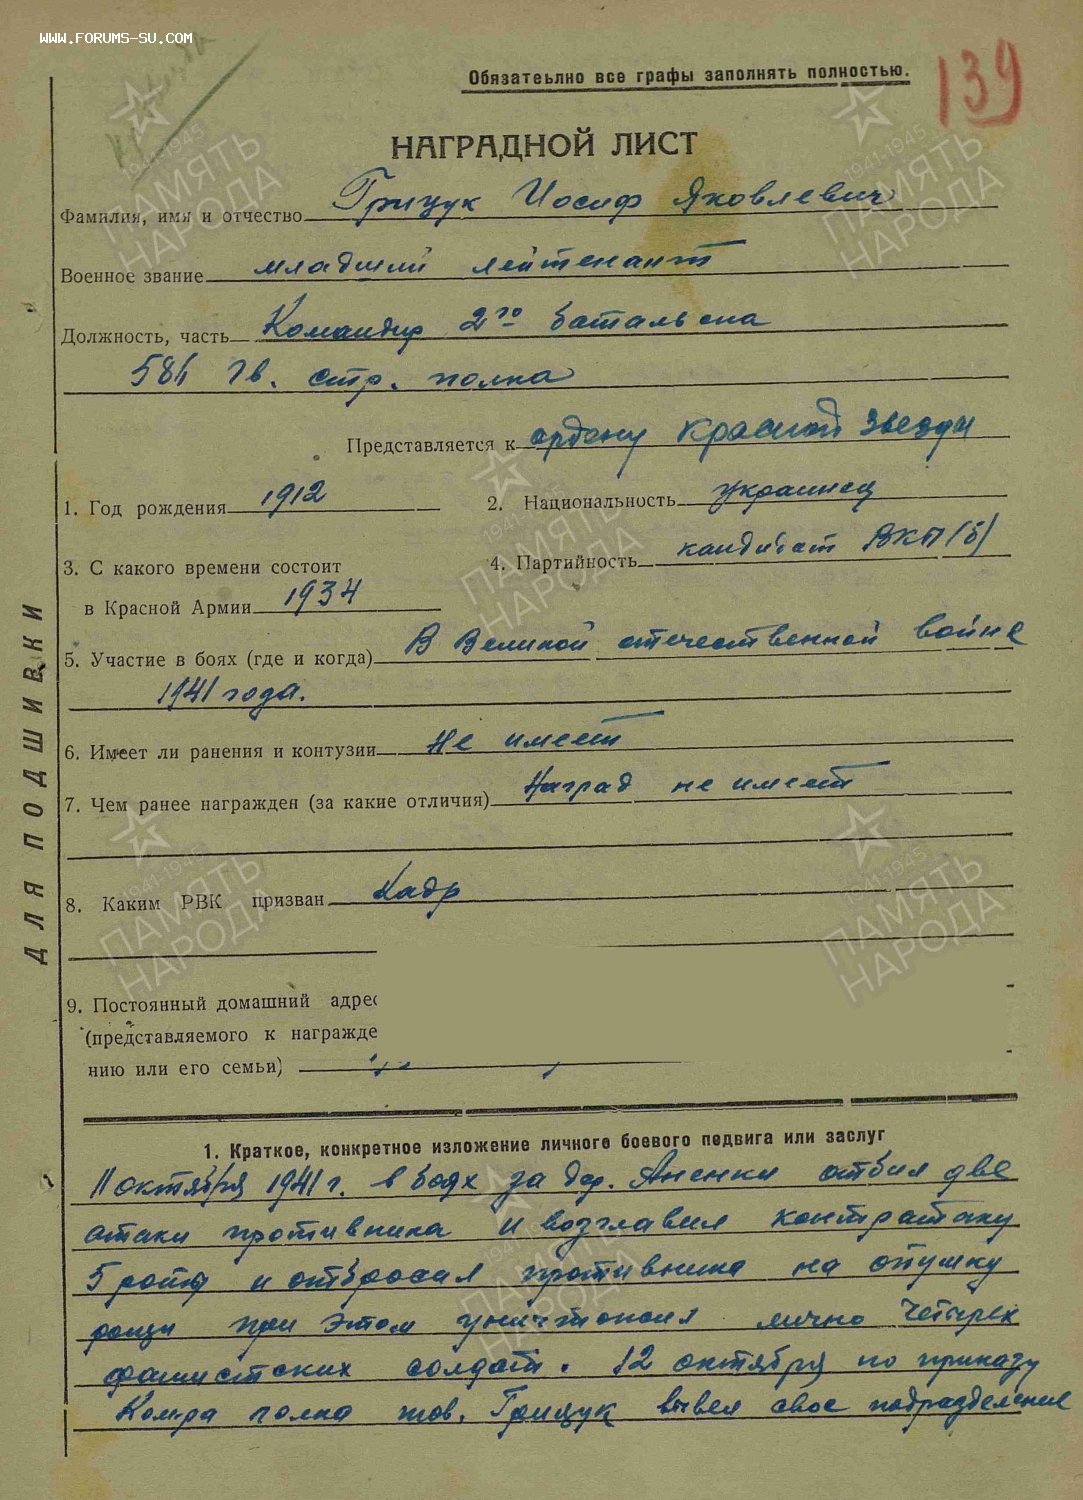 WWW.FORUMS-SU.COM
Обязатеьлно все графы заполнять полностью.
139
НАГРАДНОЙ ЛИСТ
Фамилия, имя и отчество Грицук Иосиф Яковлевич
Военное звание младший лейтенант
Должность, часть Командир 2го батальона
Гв. стр. полка
Представляется к ордену Красной Звезды
1. Год рождения 1912
2. Национальность украинец
3. С какого времени состоит
в Красной Армии 1934
4. Партийность кандидат ВКП(б)
5. Участие в боях (где и когда) В Великой отечественной войне
1941 года.
6. Имеет ли ранения и контузии Не имеет
7. Чем ранее награжден (за какие отличия) Наград не имеет
8. Каким РВК призван Кадр
9. Постоянный домашний адрес
(представляемого к награжде
нию или его семьи)
ДЛЯ ПОДШИВКИ
1. Краткое, конкретное изложение личного боевого подвига или заслуг
11 октября 1941 г. в боях за дер. Аненки отбил две
атаки противника и возглавил контратаку
5 роты и отбросил противника на опушку
рощи при этом уничтожил лично четырех
фашистских солдат. 12 октября по приказу
Ком-ра полка тов. Грицук вывел свое подразделение
1941-1945
ПАМЯТЬ
НАРОДА